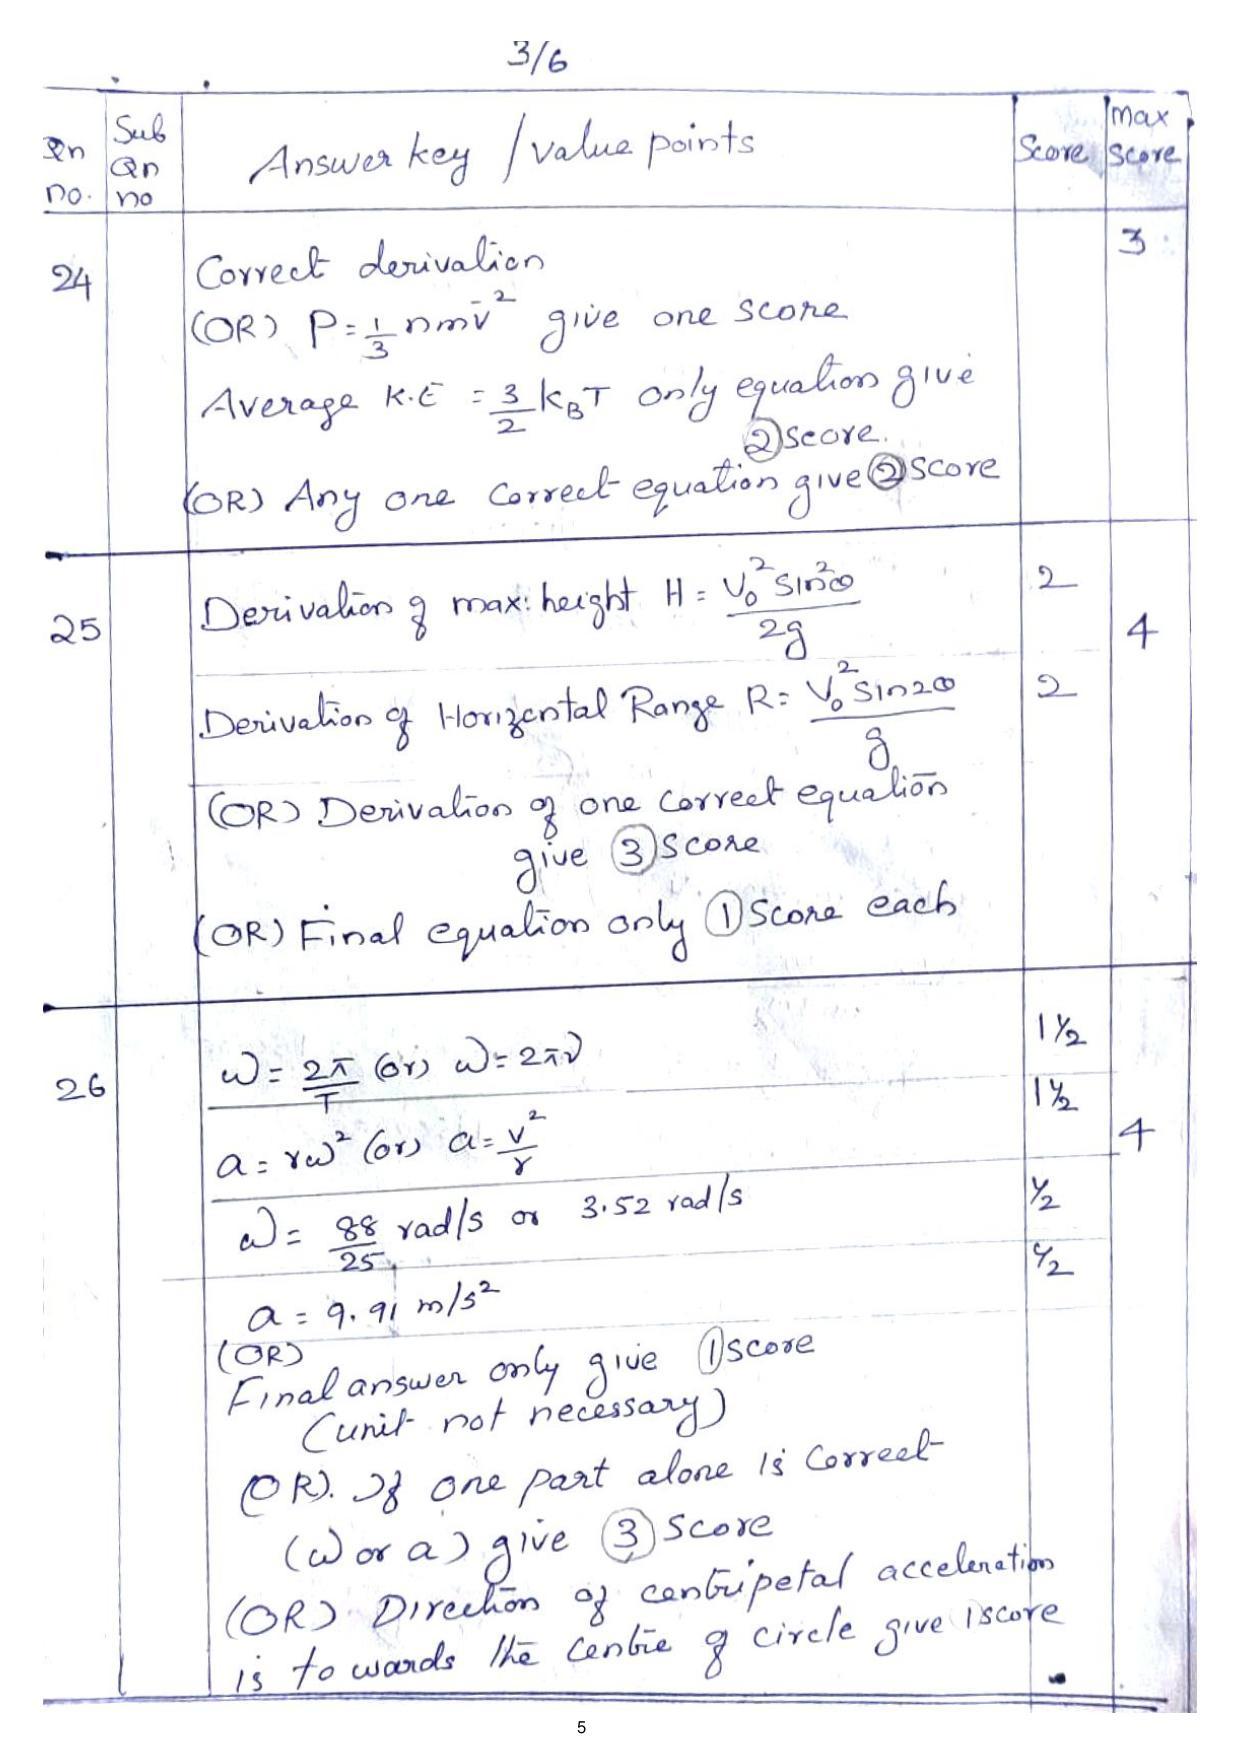 3/6
Qn no. Sub Qn no Answer key / value points Score max score
24 Correct derivation 3
(OR) P = 1/3 nmv̄² give one score
Average K.E = 3/2 k_BT only equation give
② score.
(OR) Any one correct equation give ② score
25 Derivation of max: height H = V₀² sin²θ / 2g 2 4
Derivation of Horizontal Range R = V₀² sin2θ / g 2
(OR) Derivation of one correct equation
give ③ score
(OR) Final equation only ① score each
26 ω = 2π/T (or) ω = 2πν 1 ½
a = rω² (or) a = v²/r 1 ½ 4
ω = 88/25 rad/s or 3.52 rad/s ½
a = 9.91 m/s² ½
(OR)
Final answer only give ① score
(unit not necessary)
(OR). If one part alone is correct
(ω or a) give ③ score
(OR) Direction of centripetal acceleration
is towards the centre of circle give 1 score
5